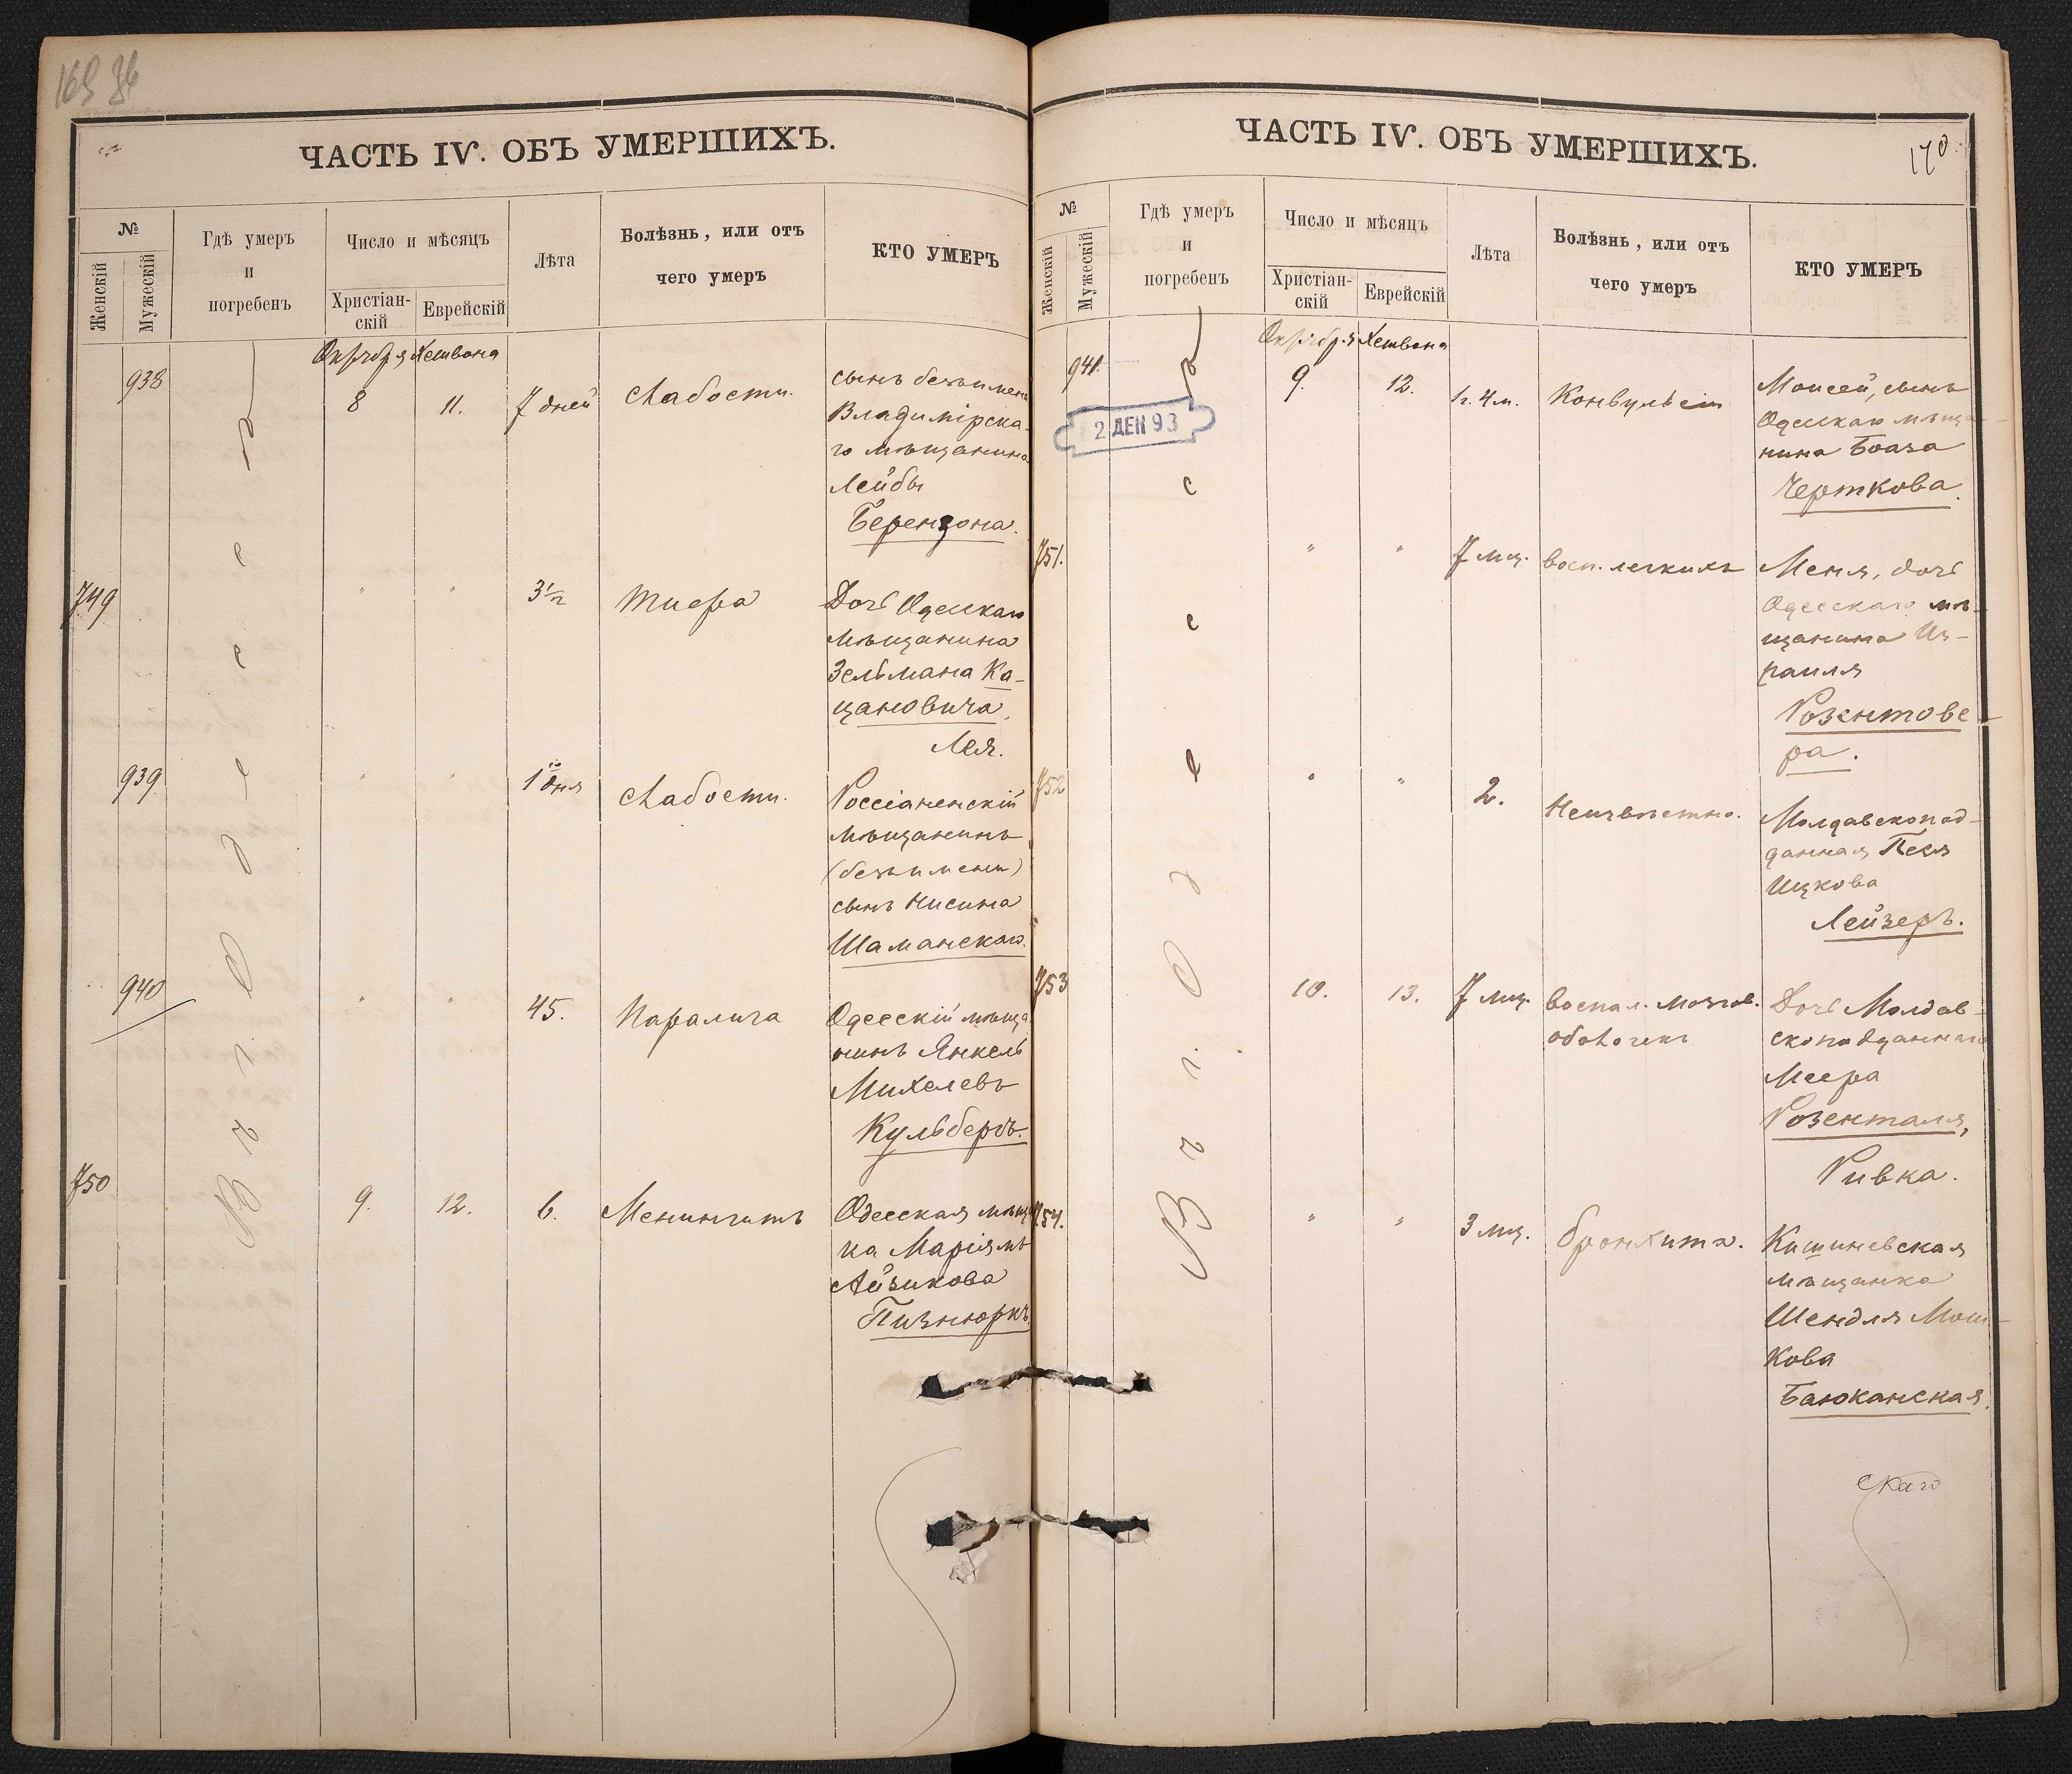 169 36
ЧАСТЬ IV. ОБЪ УМЕРШИХЪ.
№
Женскій
Мужескій
Гдѣ умеръ
и
погребенъ
Число и мѣсяцъ
Христіан-
скій
Еврейскій
Лѣта
Болѣзнь, или отъ
чего умеръ
КТО УМЕРЪ
Въ г. Одессѣ
Октября Хешвона
938
8
11.
7 дней
Слабости.
сынъ безъимен
Владимірска-
го мѣщанина
Лейбы
Берензона.
749
"
"
3½
Тифа
Дочь Одесскаго
мѣщанина
Зельмана Ка-
цановича,
Лея.
939
"
"
1 дня
Слабости.
Россіаненскій
мѣщанинъ
(безъимени)
сынъ Нисина
Шаманскаго.
940
"
"
45.
Паралича
Одесскій мѣща
нинъ Янкель
Михелевъ
Кульбергъ.
750
9.
12.
6.
Менингитъ
Одесская мѣщ
ка Маріямъ
Айзикова
ЧАСТЬ IV. ОБЪ УМЕРШИХЪ.
170
№
Женскій
Мужескій
Гдѣ умеръ
и
погребенъ
Число и мѣсяцъ
Христіан-
скій
Еврейскій
Лѣта
Болѣзнь, или отъ
чего умеръ
КТО УМЕРЪ
Въ г. Одессѣ
Октября Хешвона
941.
2 ДЕК 93
9.
12.
1 г. 4 м.
Конвульсіи
Моисей, сынъ
Одесскаго мѣща-
нина Боаза
Черткова.
751.
"
"
7 мц.
Восп. легкихъ
Меня, дочь
Одесскаго мѣ-
щанина Из-
раиля
Розентове-
ра.
752
"
"
2.
Неизвѣстно.
Молдавскопод-
данная Песя
Ицкова
Лейзеръ.
753
10.
13.
7 мц.
Воспал. мозгов.
оболочекъ
Дочь Молдав-
скоподданнаго
Меера
Розенталя,
Ривка.
754.
"
"
3 мц.
бронхита.
Кишиневская
мѣщанка
Шендля Мош-
кова
Баюканская.
скаго